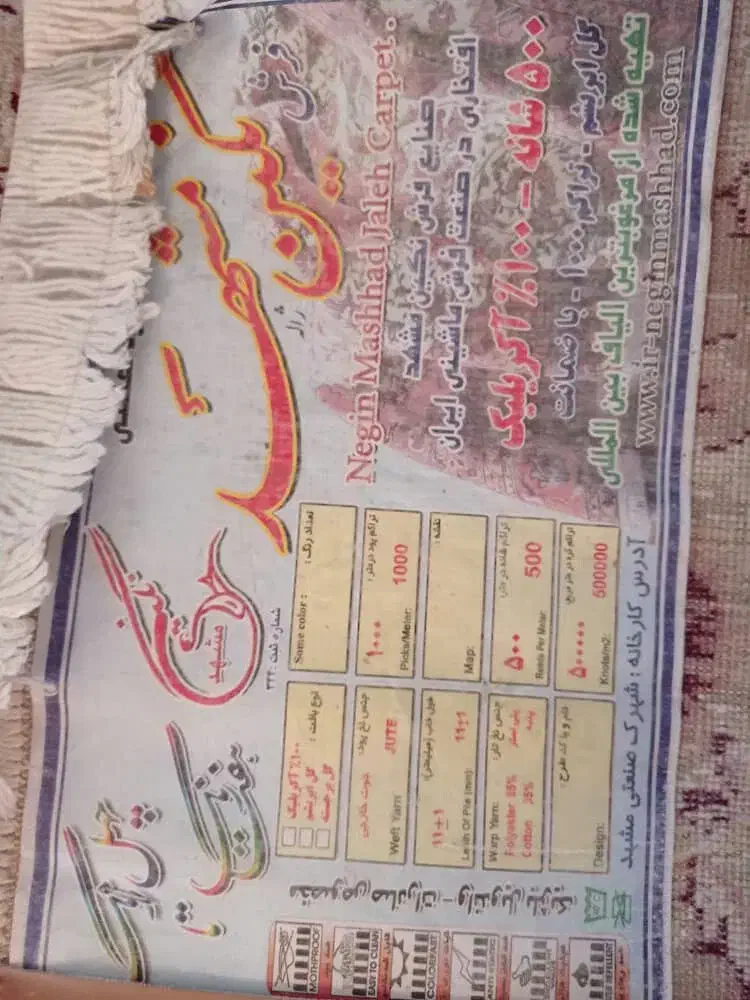 فرش
نگین مشهد
ژاله
Negin Mashhad Jaleh Carpet .
صنایع فرش نگین مشهد
افتخاری در صنعت فرش ماشینی ایران
۵۰۰ شانه - ۱۰۰٪ آکریلیک
گل ابریشم - تراکم ۱۰۰۰ - با ضمانت
تهیه شده از مرغوبترین الیاف بین المللی
www.ir-neginmashhad.com
نگین
مشهد
شماره ثبت : ۳۲۲
تعداد رنگ :
Some color :
تراکم پود در متر :
۱۰۰۰ 1000
Picks/Meter:
نقشه :
Map:
تراکم شانه در متر:
۵۰۰ 500
Reeds Per Meter:
تراکم گره در متر مربع:
۵۰۰۰۰۰ 500000
Knots/m2:
نوع بافت :
۱۰۰٪ آکریلیک
گل ابریشم
گل برجسته
جنس نخ پود:
جوت خارجی JUTE
Weft Yarn
طول خاب (میلیمتر):
11±1 11±1
Lenth Of Pile (mm):
جنس نخ تار:
پلی استر
پنبه
Warp Yarn:
Polyester
Cotton
نام و یا کد طرح :
Design:
آدرس کارخانه : شهرک صنعتی مشهد
MOTHPROOF
EASY TO CLEAN
COLORFAST